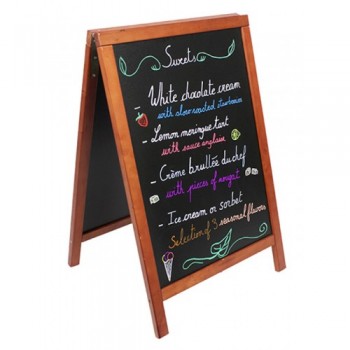 Sweets
- White chocolate cream
with slow roasted strawberries
- Lemon meringue tart
with sauce anglaise
- Crème brullée du chef
with pieces of nougat
- Ice cream or sorbet
Selection of 3 seasonal flavours